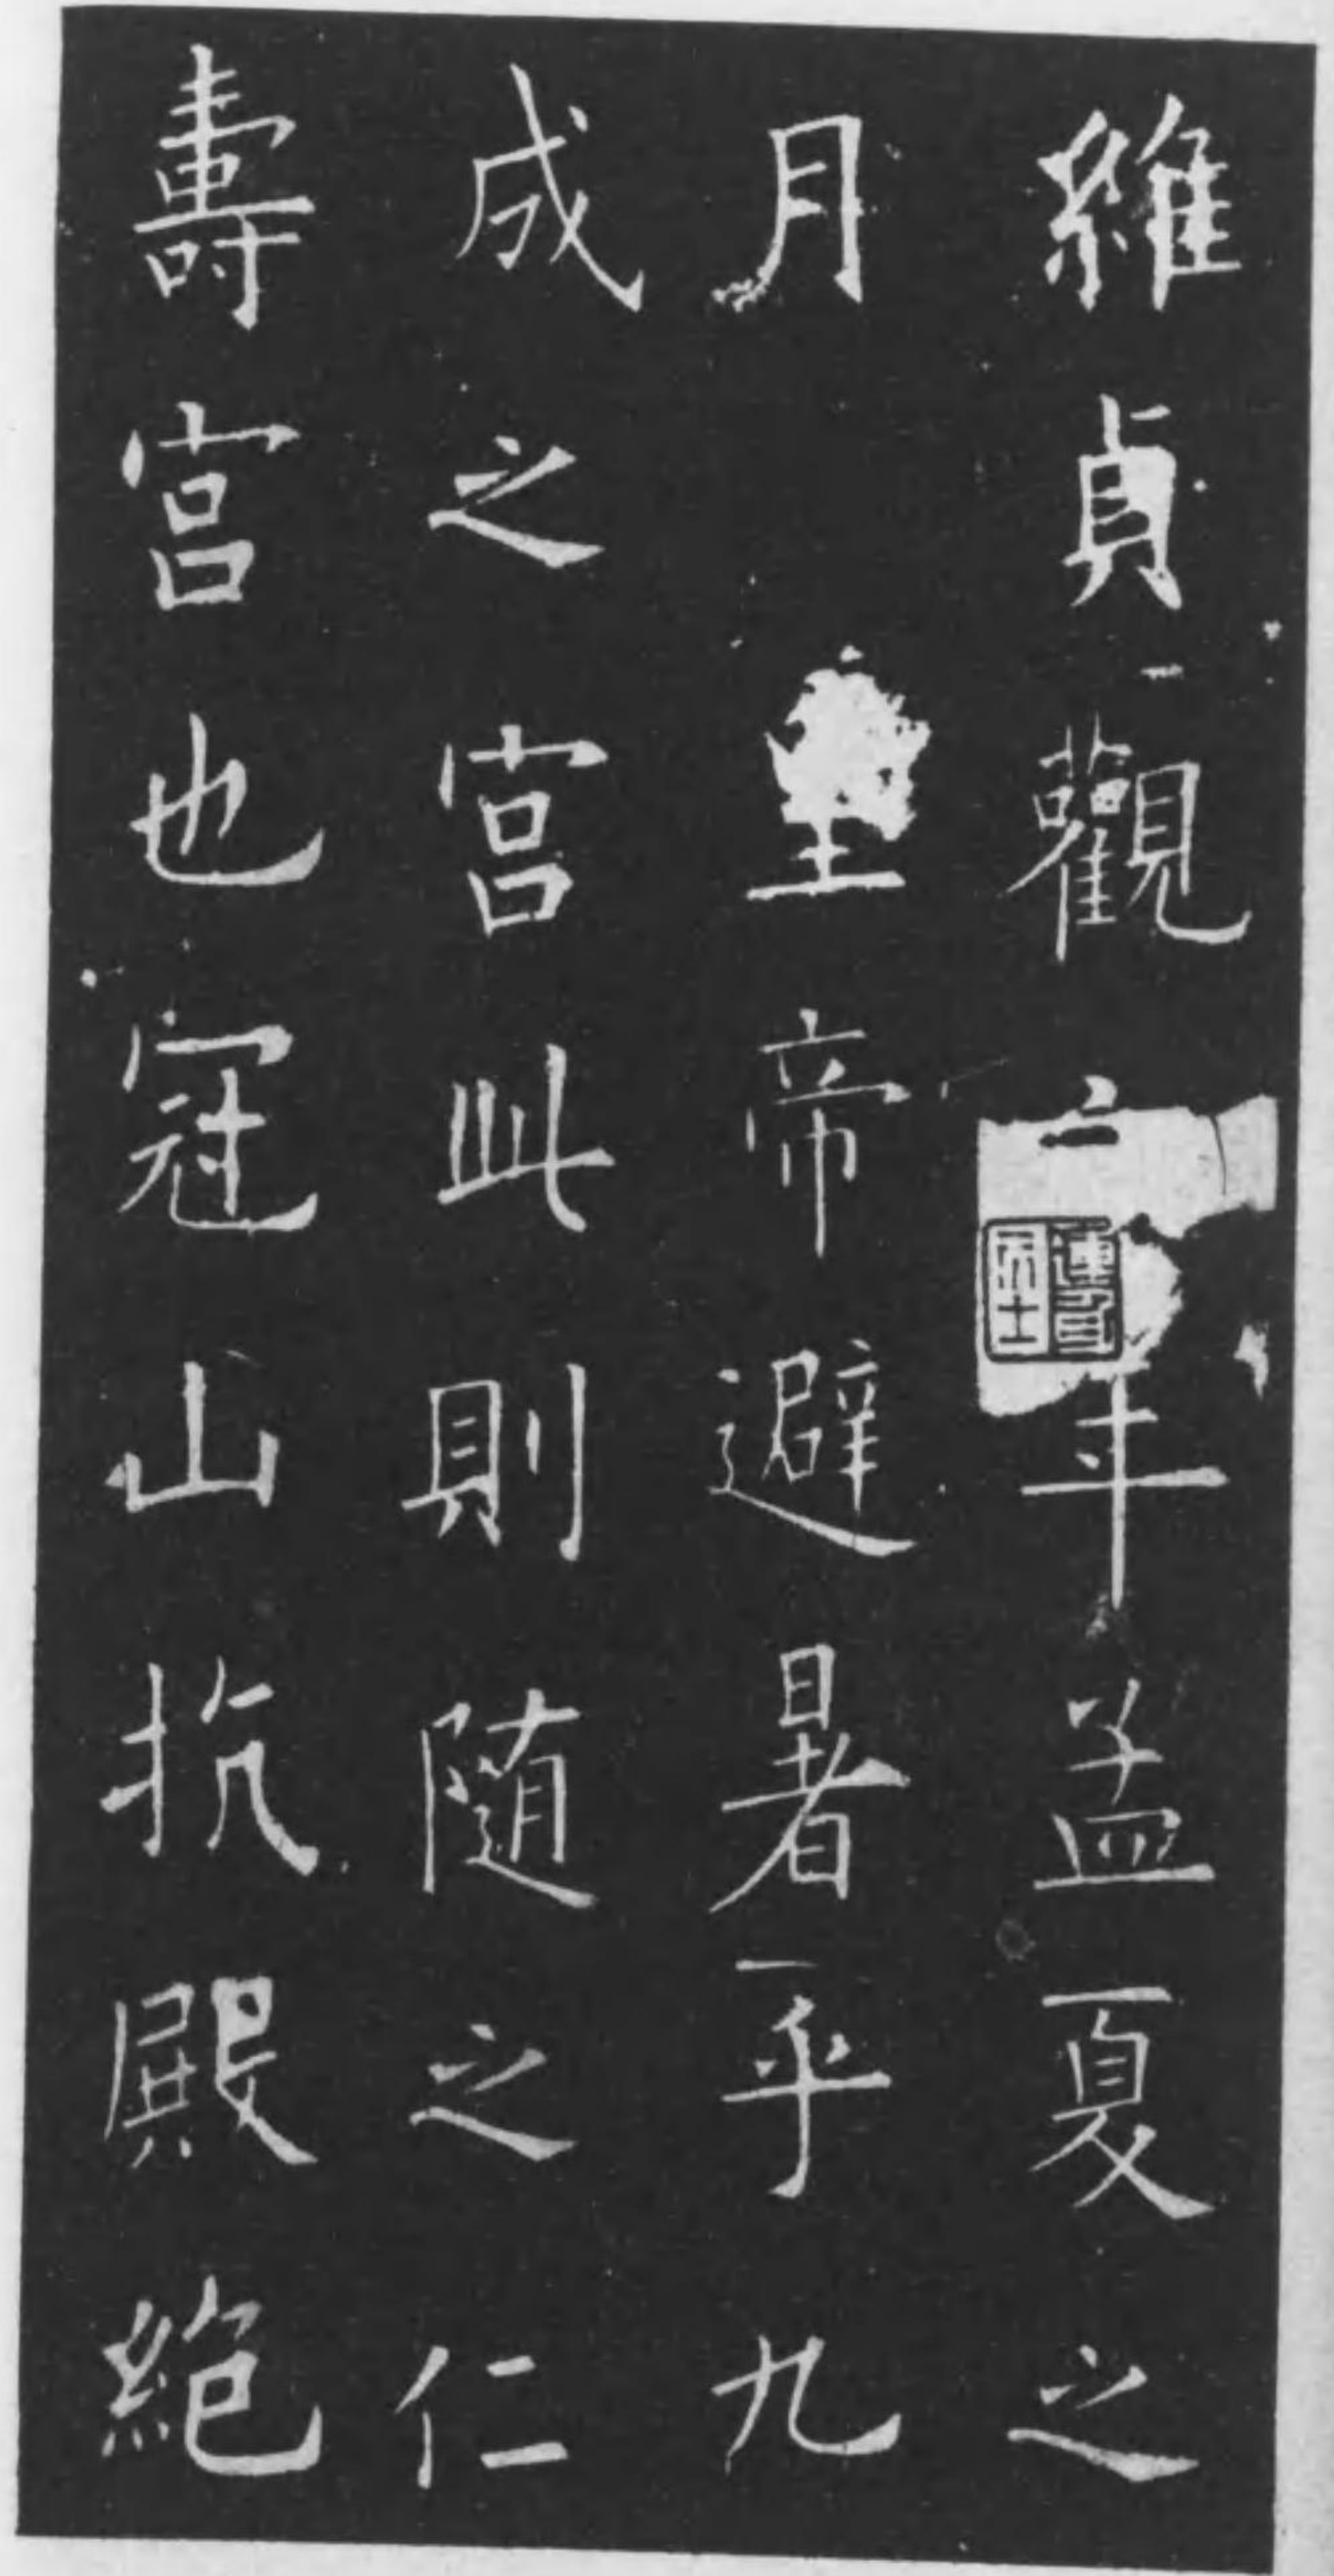 維貞觀年孟夏之
月皇帝避暑乎九
成之宮此則隨之仁
壽宮也冠山抗殿絕